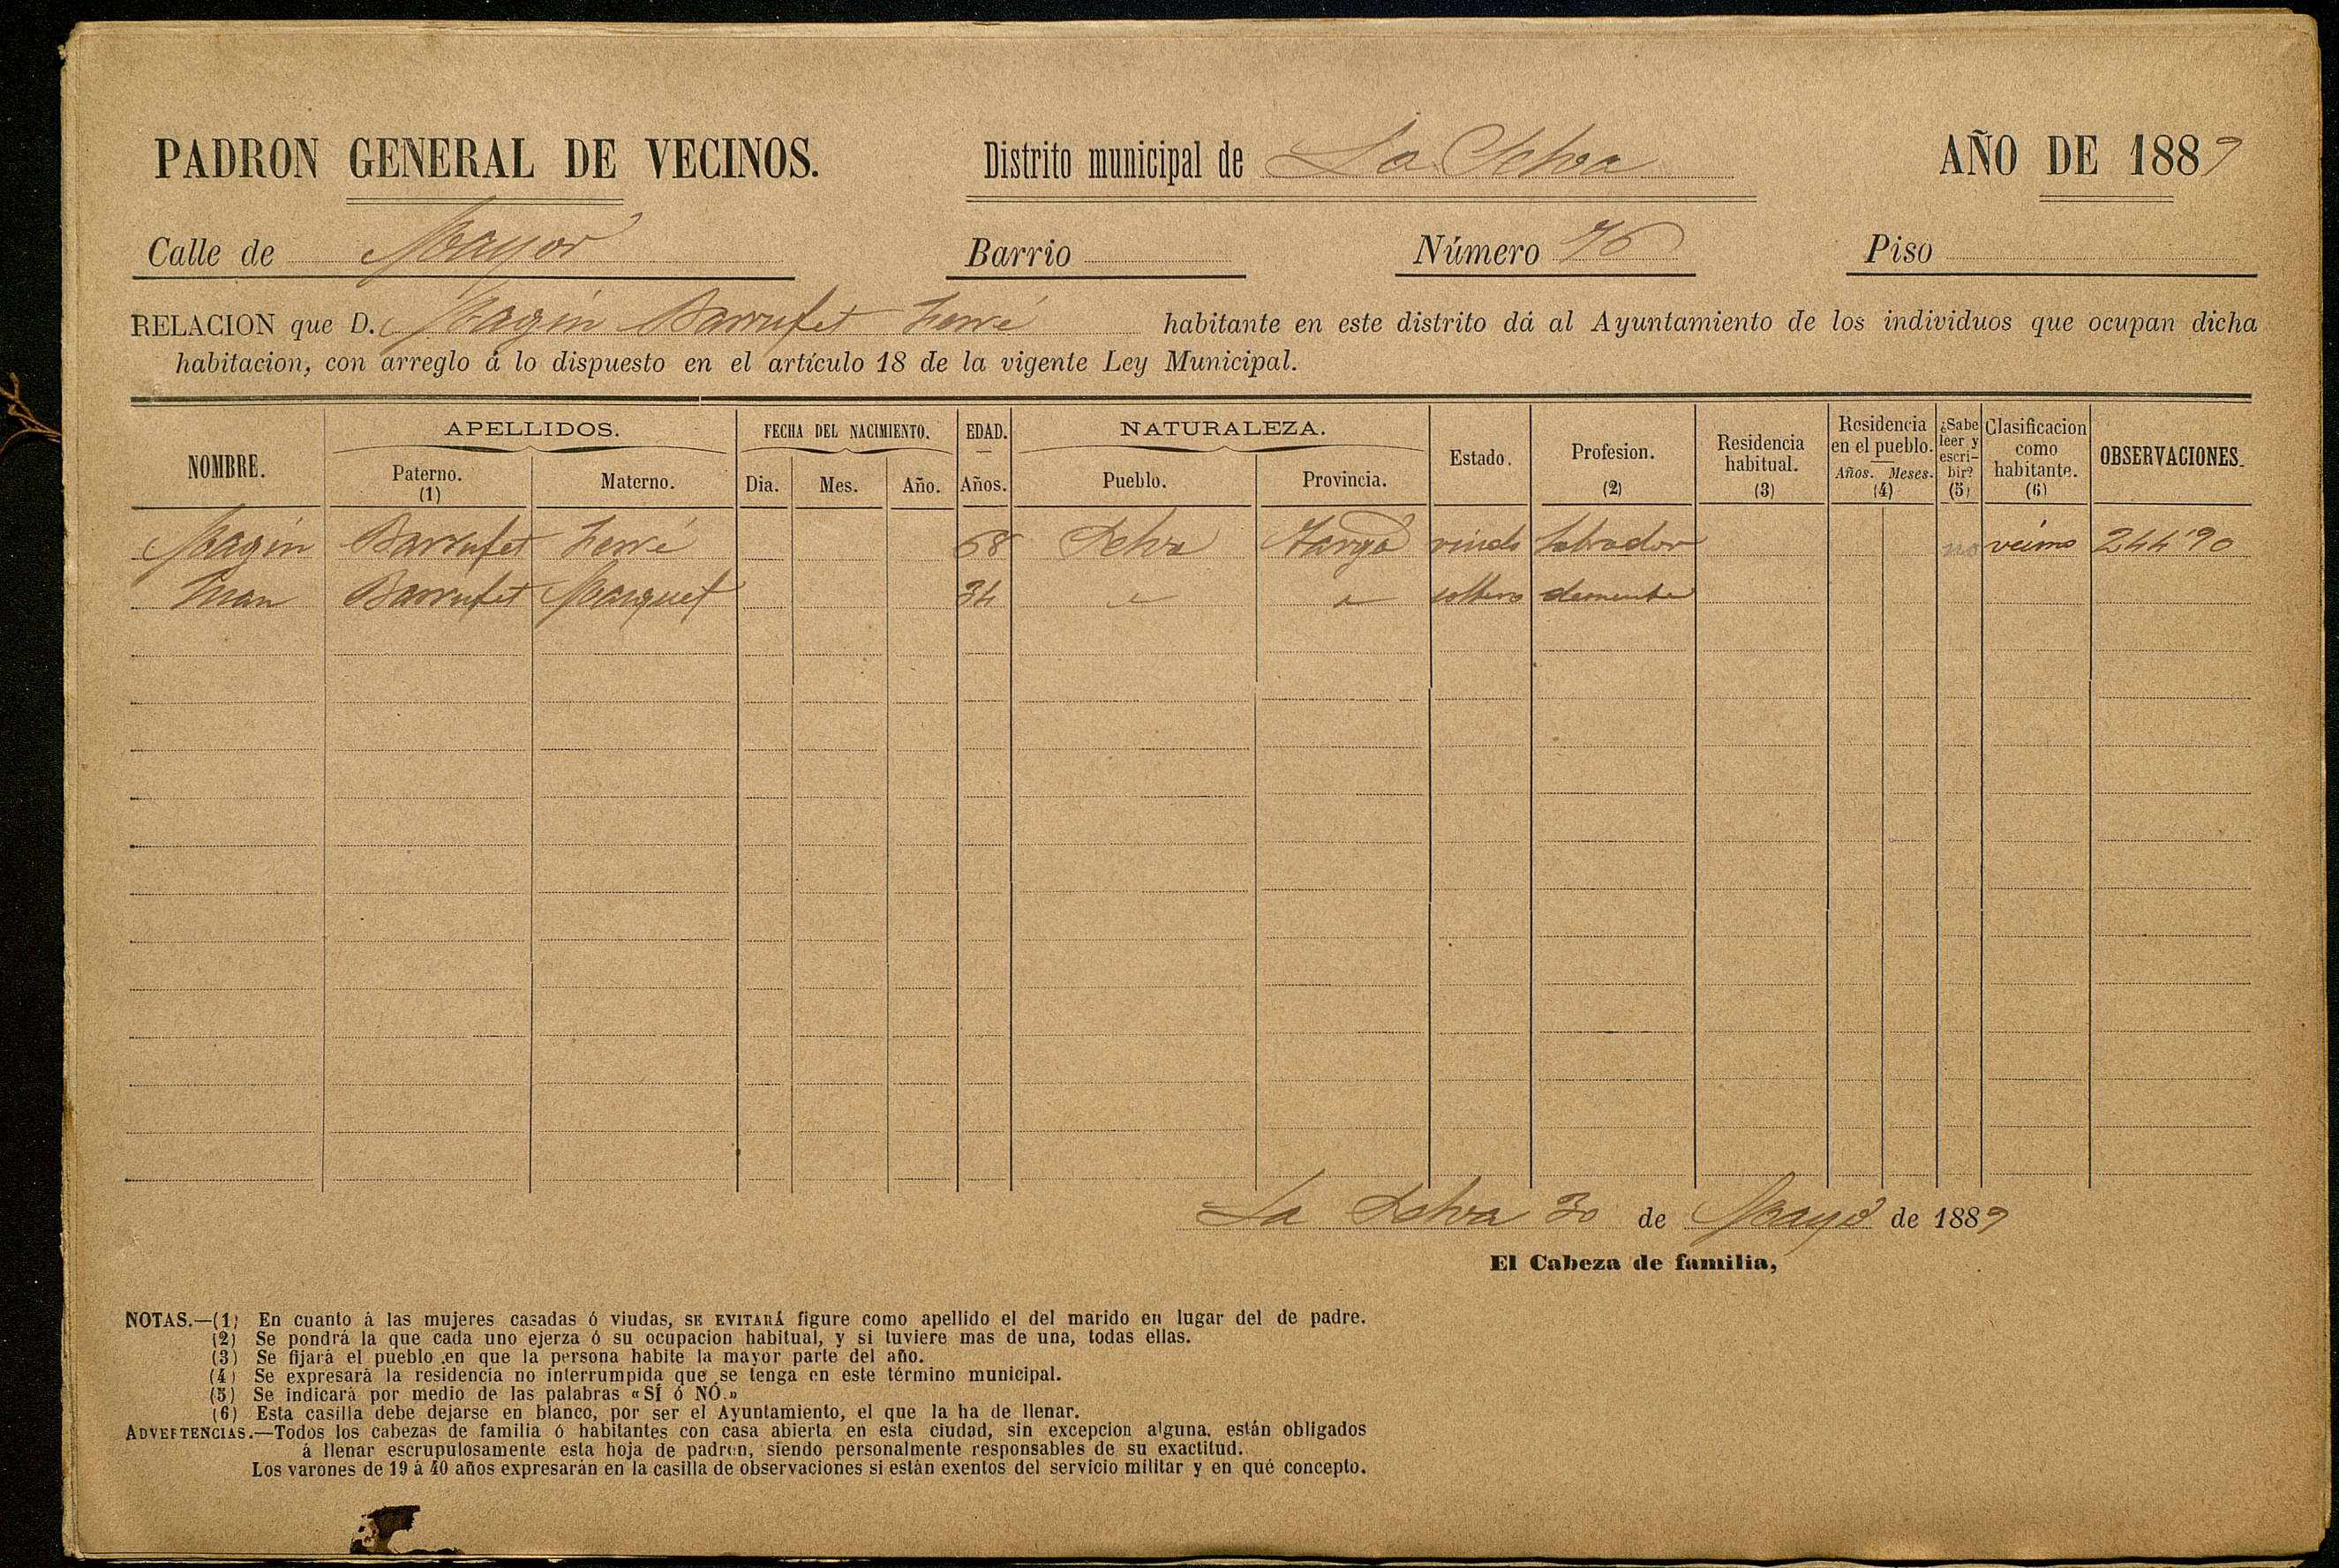 PADRON GENERAL DE VECINOS. Distrito municipal de La Selva AÑO DE 1889
Calle de Mayor Barrio Número 76 Piso
RELACION que D. Magin Barrufet Ferré habitante en este distrito dá al Ayuntamiento de los individuos que ocupan dicha
habitacion, con arreglo á lo dispuesto en el artículo 18 de la vigente Ley Municipal.
NOMBRE. APELLIDOS. FECHA DEL NACIMIENTO. EDAD. NATURALEZA. Estado. Profesion. Residencia habitual. Residencia en el pueblo. ¿Sabe leer y escribir? Clasificacion como habitante. OBSERVACIONES.
Paterno. Materno. Dia. Mes. Año. Años. Pueblo. Provincia. (2) (3) Años. Meses. (4) (5) (6)
(1)
Magin Barrufet Ferré 68 Selva Tarrgª viudo Labrador no vecino 244'90
Juan Barrufet Masquef 34 soltero demente
La Selva 30 de Mayo de 1889
El Cabeza de familia,
NOTAS.—(1) En cuanto á las mujeres casadas ó viudas, SE EVITARÁ figure como apellido el del marido en lugar del de padre.
(2) Se pondrá la que cada uno ejerza ó su ocupacion habitual, y si tuviere mas de una, todas ellas.
(3) Se fijará el pueblo en que la persona habite la mayor parte del año.
(4) Se expresará la residencia no interrumpida que se tenga en este término municipal.
(5) Se indicará por medio de las palabras «SÍ ó NÓ.»
(6) Esta casilla debe dejarse en blanco, por ser el Ayuntamiento, el que la ha de llenar.
ADVERTENCIAS.—Todos los cabezas de familia ó habitantes con casa abierta en esta ciudad, sin excepcion alguna, están obligados
á llenar escrupulosamente esta hoja de padron, siendo personalmente responsables de su exactitud.
Los varones de 19 á 40 años expresarán en la casilla de observaciones si están exentos del servicio militar y en qué concepto.